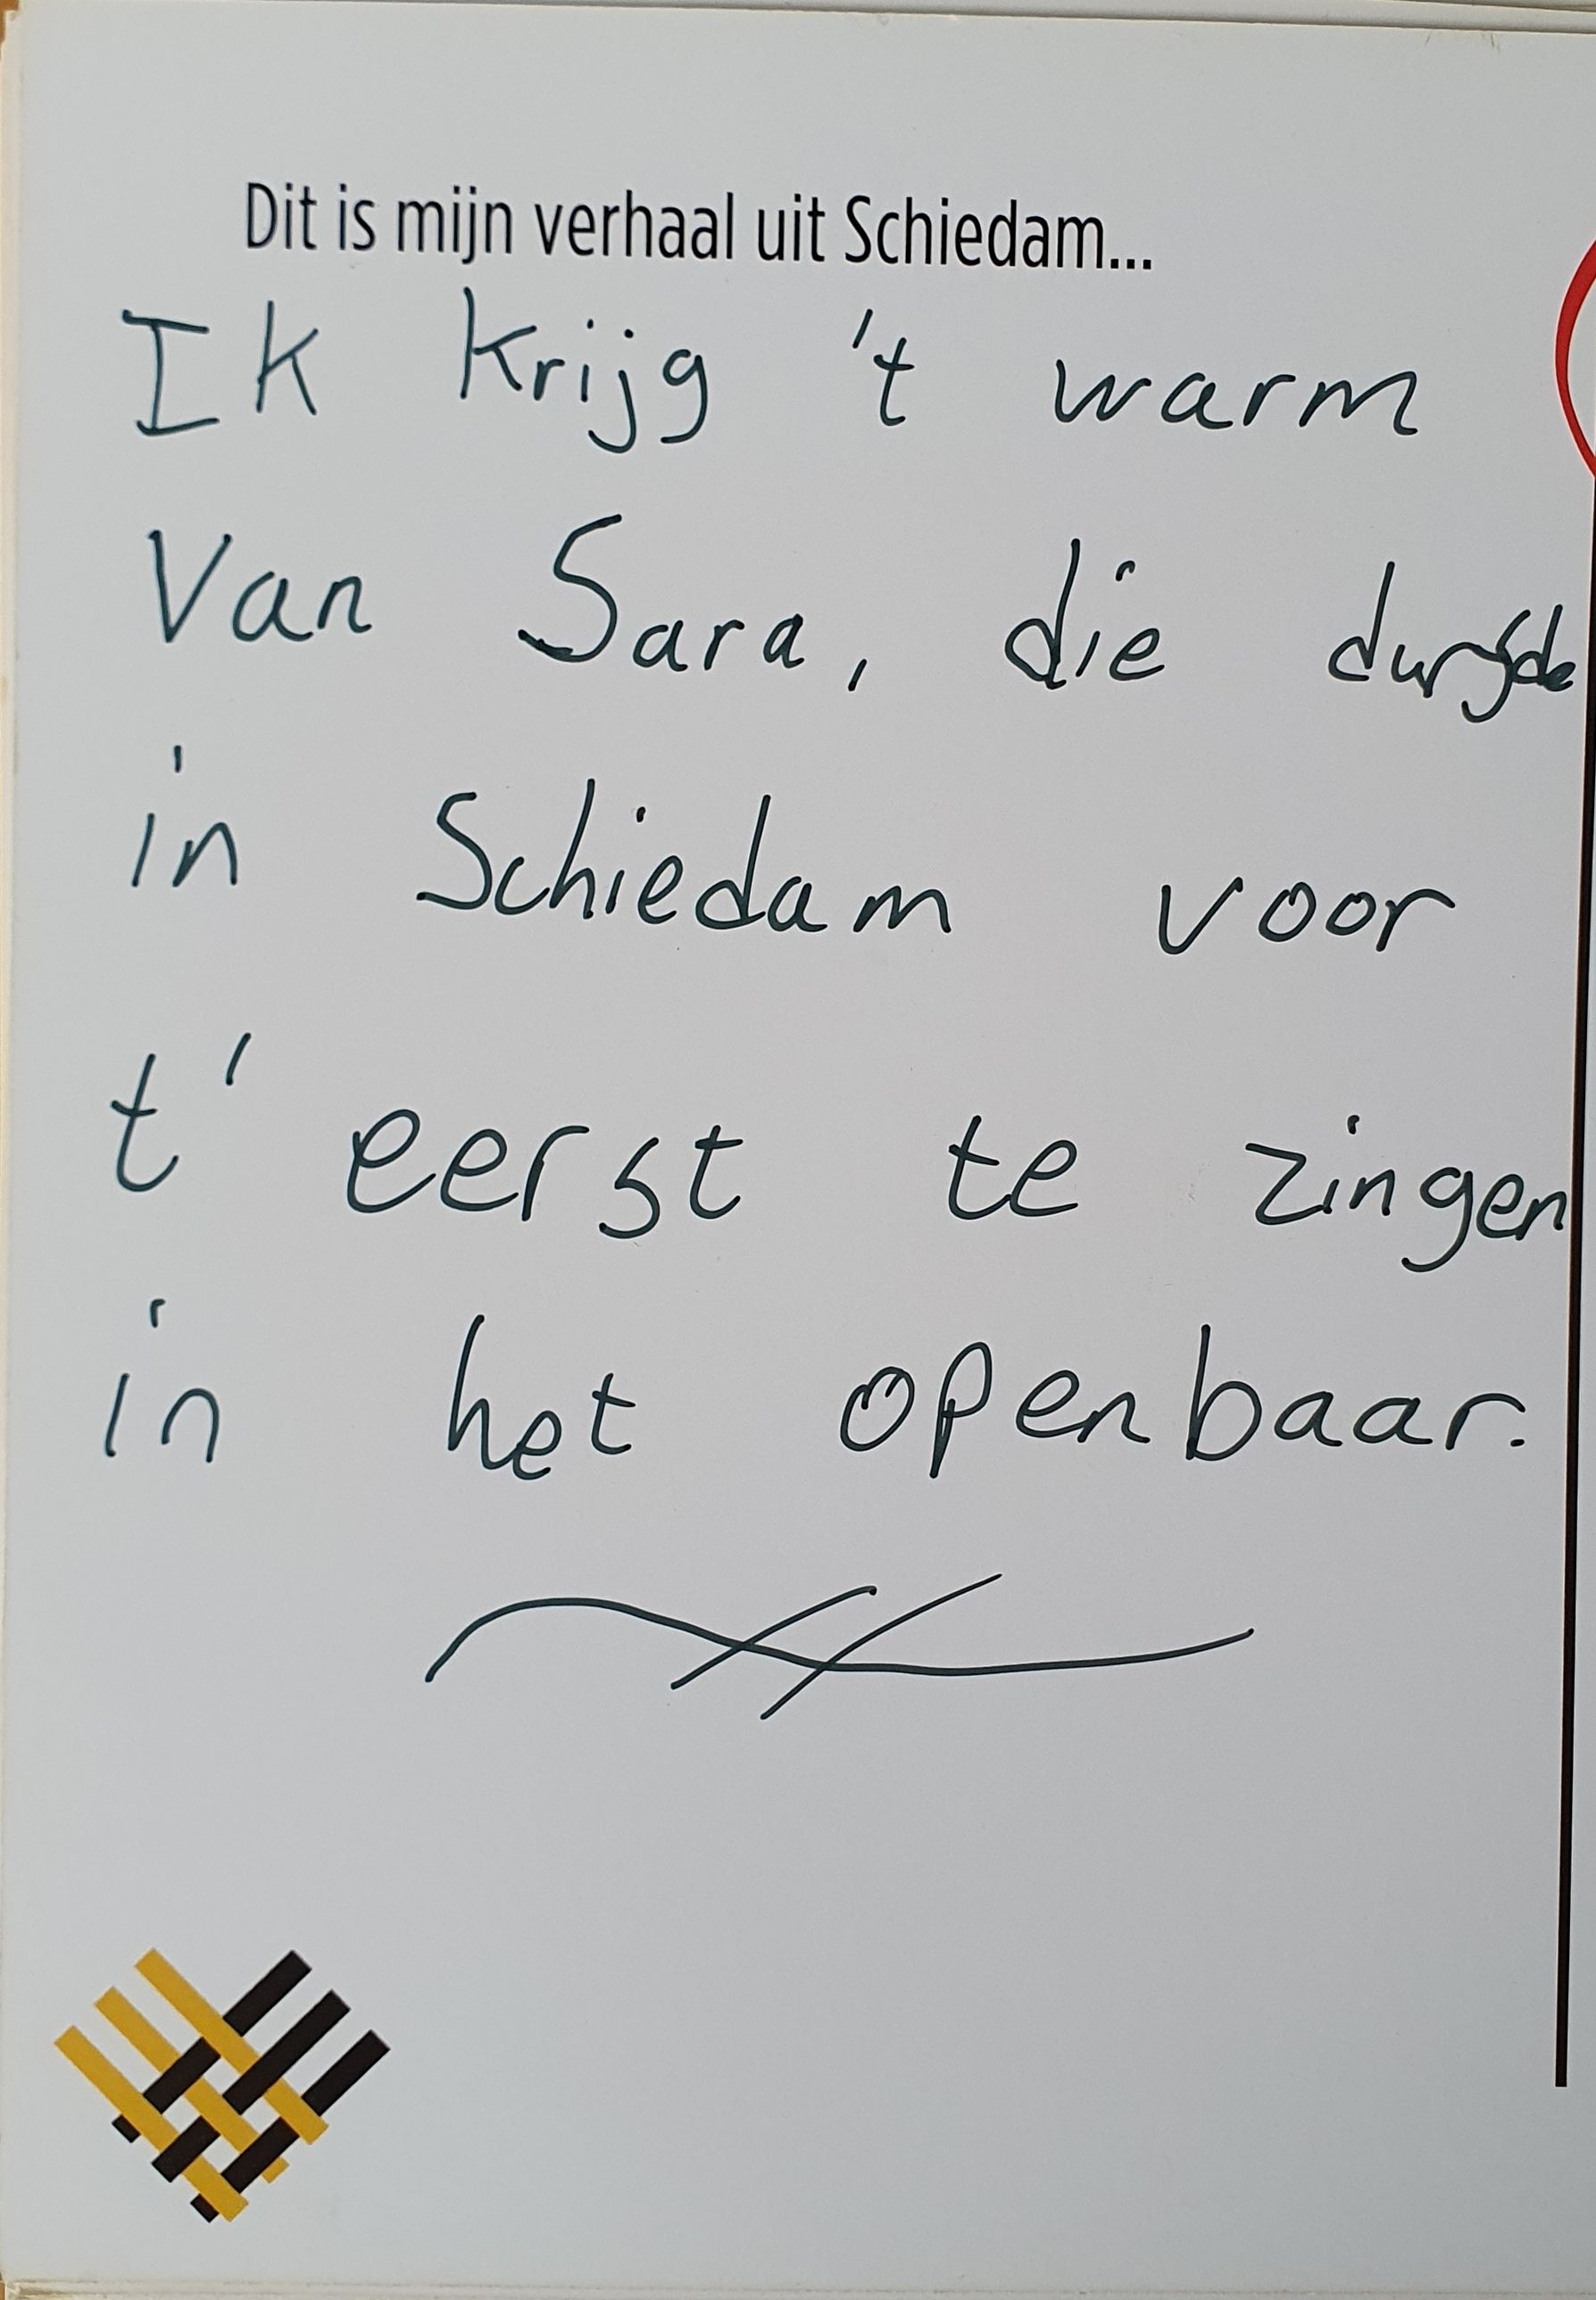 Dit is mijn verhaal uit Schiedam...
Ik krijg 't warm
Van Sara, die durfde
in Schiedam voor
t' eerst te zingen
in het openbaar.